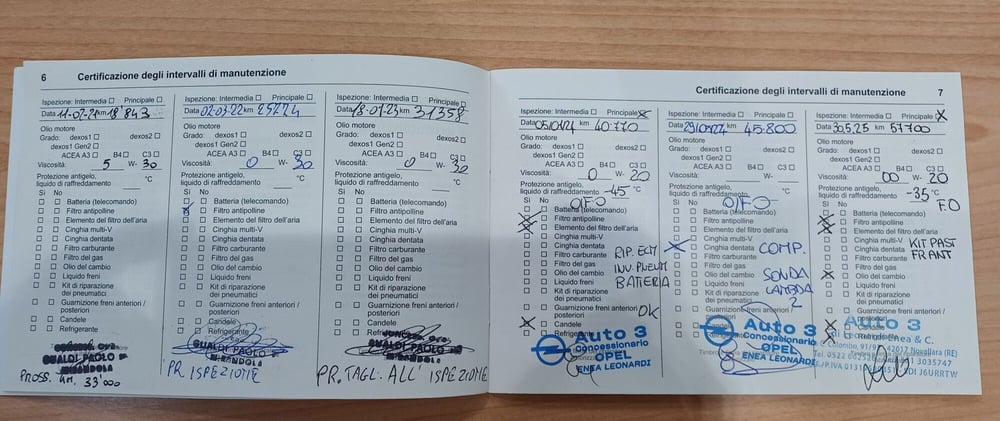 6 Certificazione degli intervalli di manutenzione
Ispezione: Intermedia Principale
Data 11-02-21 km 18'843
Olio motore
Grado: dexos1 dexos2
dexos1 Gen2
ACEA A3 B4 C3
Viscosità: 5 W- 30
Protezione antigelo,
liquido di raffreddamento °C
Sì No
Batteria (telecomando)
Filtro antipolline
Elemento del filtro dell'aria
Cinghia multi-V
Cinghia dentata
Filtro carburante
Filtro del gas
Olio del cambio
Liquido freni
Kit di riparazione
dei pneumatici
Guarnizione freni anteriori /
posteriori
Candele
Refrigerante
GUALDI PAOLO
MIRANDOLA
PROSS. KM. 33'000
Ispezione: Intermedia Principale
Data 02-03-22 km
Olio motore
Grado: dexos1 dexos2
dexos1 Gen2
ACEA A3 B4 C3
Viscosità: 0 W- 30
Protezione antigelo,
liquido di raffreddamento °C
Sì No
Batteria (telecomando)
Filtro antipolline
Elemento del filtro dell'aria
Cinghia multi-V
Cinghia dentata
Filtro carburante
Filtro del gas
Olio del cambio
Liquido freni
Kit di riparazione
dei pneumatici
Guarnizione freni anteriori /
posteriori
Candele
Refrigerante
GUALDI PAOLO
MIRANDOLA
PR. ISPEZIONE
Ispezione: Intermedia Principale
Data 18-01-23 km 31358
Olio motore
Grado: dexos1 dexos2
dexos1 Gen2
ACEA A3 B4 C3
Viscosità: 0 W- 30
Protezione antigelo,
liquido di raffreddamento °C
Sì No
Batteria (telecomando)
Filtro antipolline
Elemento del filtro dell'aria
Cinghia multi-V
Cinghia dentata
Filtro carburante
Filtro del gas
Olio del cambio
Liquido freni
Kit di riparazione
dei pneumatici
Guarnizione freni anteriori /
posteriori
Candele
Refrigerante
GUALDI PAOLO
MIRANDOLA
PR. TAGL. ALL' ISPEZIONE
Certificazione degli intervalli di manutenzione 7
Ispezione: Intermedia Principale
Data km 40770
Olio motore
Grado: dexos1 dexos2
dexos1 Gen2
ACEA A3 B4 C3
Viscosità: 0 W- 20
Protezione antigelo,
liquido di raffreddamento -45 °C
Sì No O/FO
Batteria (telecomando)
Filtro antipolline
Elemento del filtro dell'aria
Cinghia multi-V
Cinghia dentata RIP. ECM
Filtro carburante
Filtro del gas INV. PNEUM
Olio del cambio
Liquido freni BATTERIA
Kit di riparazione
dei pneumatici
Guarnizione freni anteriori /
posteriori OK
Candele
Refrigerante
Auto 3
Concessionario
OPEL
ENEA LEONARDI
Ispezione: Intermedia Principale
Data km 45800
Olio motore
Grado: dexos1 dexos2
dexos1 Gen2
ACEA A3 B4 C3
Viscosità: 0 W- 20
Protezione antigelo,
liquido di raffreddamento °C
Sì No O/FO
Batteria (telecomando)
Filtro antipolline
Elemento del filtro dell'aria
Cinghia multi-V
Cinghia dentata COMP.
Filtro carburante
Filtro del gas
Olio del cambio SONDA
Liquido freni LAMBDA
Kit di riparazione 2
dei pneumatici
Guarnizione freni anteriori /
posteriori
Auto 3
Concessionario
OPEL
ENEA LEONARDI
Ispezione: Intermedia Principale
Data 30.5.25 km 57700
Olio motore
Grado: dexos1 dexos2
dexos1 Gen2
ACEA A3 B4 C3
Viscosità: 00 W- 20
Protezione antigelo,
liquido di raffreddamento -35 °C
Sì No F.O
Batteria (telecomando)
Filtro antipolline
Elemento del filtro dell'aria
Cinghia multi-V KIT PAST
Cinghia dentata FRANT
Filtro carburante
Filtro del gas
Olio del cambio
Liquido freni
Kit di riparazione
dei pneumatici
Guarnizione freni anteriori /
posteriori
Auto 3
Enea & C.
42017 Novellara (RE)
SDI J6URRTW